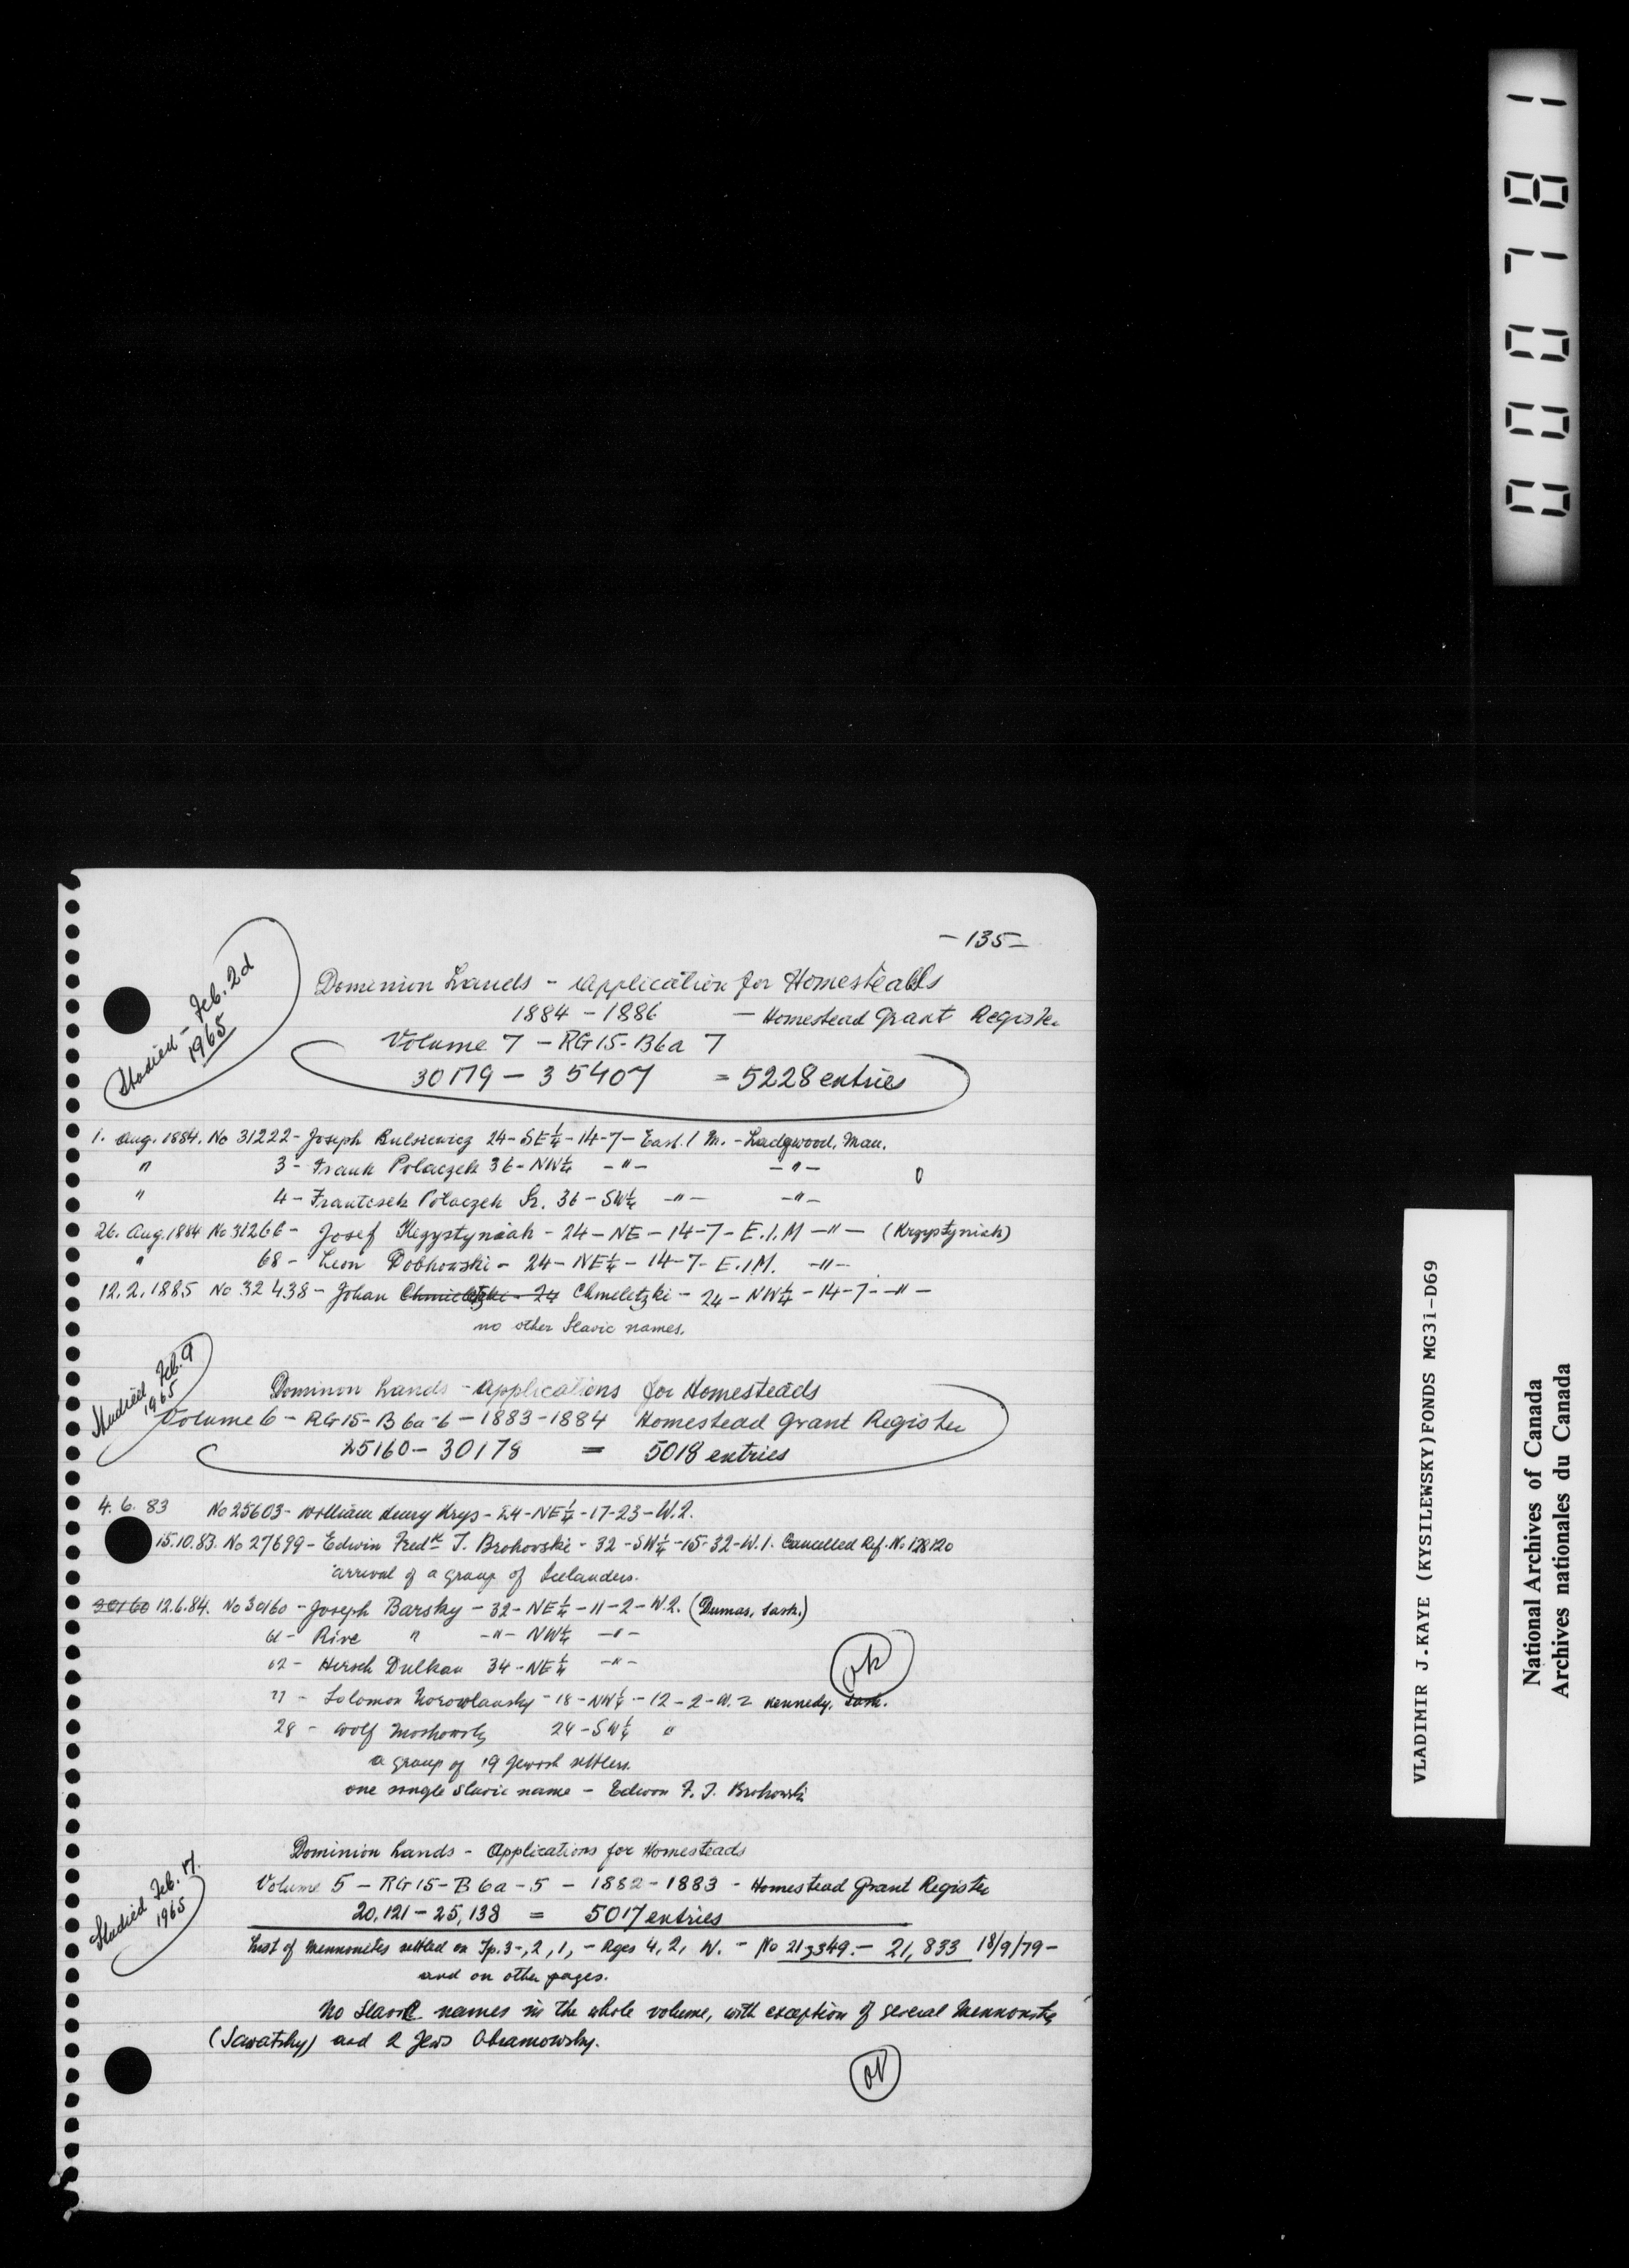 - 135 -
Studied - Feb. 2d
1965
Dominion Lands - Application for Homesteads
1884 - 1886 - Homestead Grant Register
Volume 7 - RG15-B6a 7
30179 - 35407 = 5228 entries
1. Aug. 1884. No 31222 - Joseph 24 - SE¼ - 14-7 - East. 1 M. - Ladywood, Man.
" 3 - Frank Polaczek 36 - NW¼ - " - - " -
" 4 - Polaczek Sr. 36 - SW¼ - " - - " -
26. Aug. 1884 No 31266 - Josef - 24 - NE - 14-7 - E.1.M - " - (Krzyptyniak)
" 68 - Leon Dobkowski - 24 - NE¼ - 14-7 - E.1M. - " -
12.2.1885 No 32438 - Johan Chmeletzki - 24 - NW¼ - 14-7 - " -
no other Slavic names.
Studied Feb. 9
1965
Dominion Lands - Applications for Homesteads
Volume 6 - RG15-B6a-6 - 1883-1884 Homestead Grant Register
25160 - 30178 = 5018 entries
4.6.83 No 25603 - William Henry Krys - 24 - NE¼ - 17-23 - W.2.
15.10.83. No 27699 - Edwin Fredk J. Brokovski - 32 - SW¼ - 15-32 - W.1. Cancelled Ref. No 128120
arrival of a group of Icelanders.
30160 12.6.84. No 30160 - Joseph Barsky - 32 - NE¼ - 11-2 - W.2. (Dumas, Sask.)
61 - Rive " - " - NW¼ - " -
62 - Hersch Dulkan 34 - NE¼ - " -
77 - Solomon - 18 - NW¼ - 12-2-W.2 Kennedy, Sask.
28 - Wolf 24 - SW¼ "
ok
a group of 19 Jewish settlers.
one single Slavic name - Edwin F. J. Brokowski
Dominion Lands - Applications for Homesteads
Studied Feb. 17.
1965
Volume 5 - RG15-B6a-5 - 1882-1883 - Homestead Grant Register
20,121 - 25,138 = 5017 entries
List of Mennonites settled on Tp. 3-, 2, 1, - Rges 4, 2, W. - No 21,349. - 21,833 18/9/79 -
and on other pages.
No Slavic names in the whole volume, with exception of several Mennonites
(Sawatsky) and 2 Jews Abramowsky.
ok
000781
VLADIMIR J.KAYE (KYSILEWSKY)FONDS MG31-D69
National Archives of Canada
Archives nationales du Canada